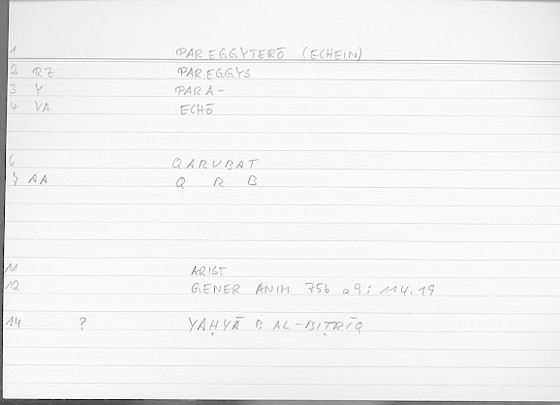 1 PAREGGYTERŌ (ECHEIN)
2 RZ PAREGGYS
3 Y PARA-
4 VA ECHŌ
6 QARUBAT
7 AA Q R B
11 ARIST
12 GENER ANIM 756 a9: 114,19
14 ? YAḤYĀ B AL-BIṬRĪQ